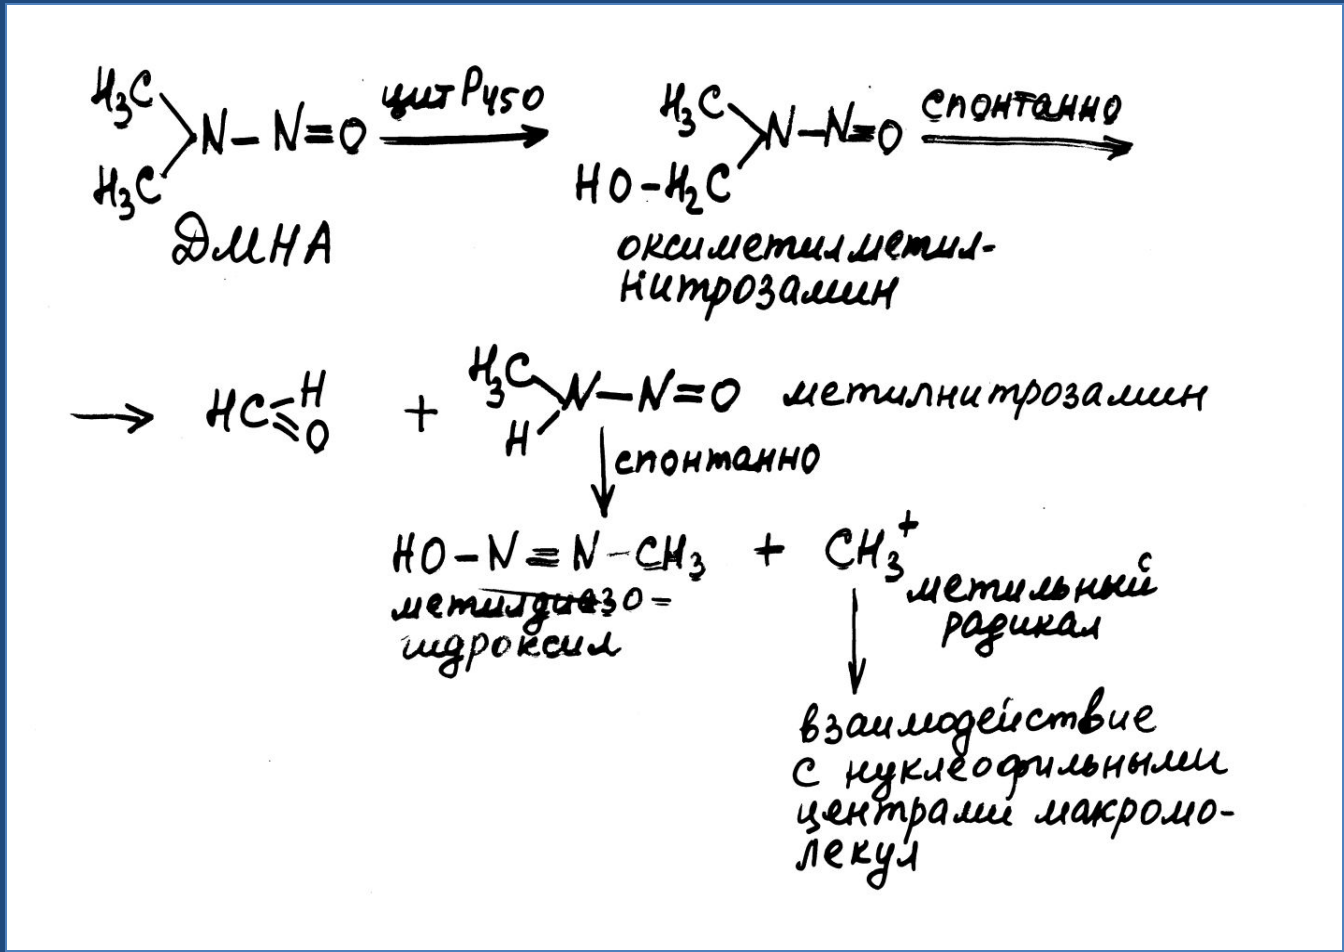 H3C
N-N=O
H3C
цит P450
ДМНА
H3C
N-N=O
HO-H2C
спонтанно
оксиметилметил-
нитрозамин
HC
H
O
+
H3C
N-N=O
H
метилнитрозамин
спонтанно
HO-N=N-CH3 + CH3+
метилдиазо-
гидроксил
метильный
радикал
взаимодействие
с нуклеофильными
центрами макромо-
лекул